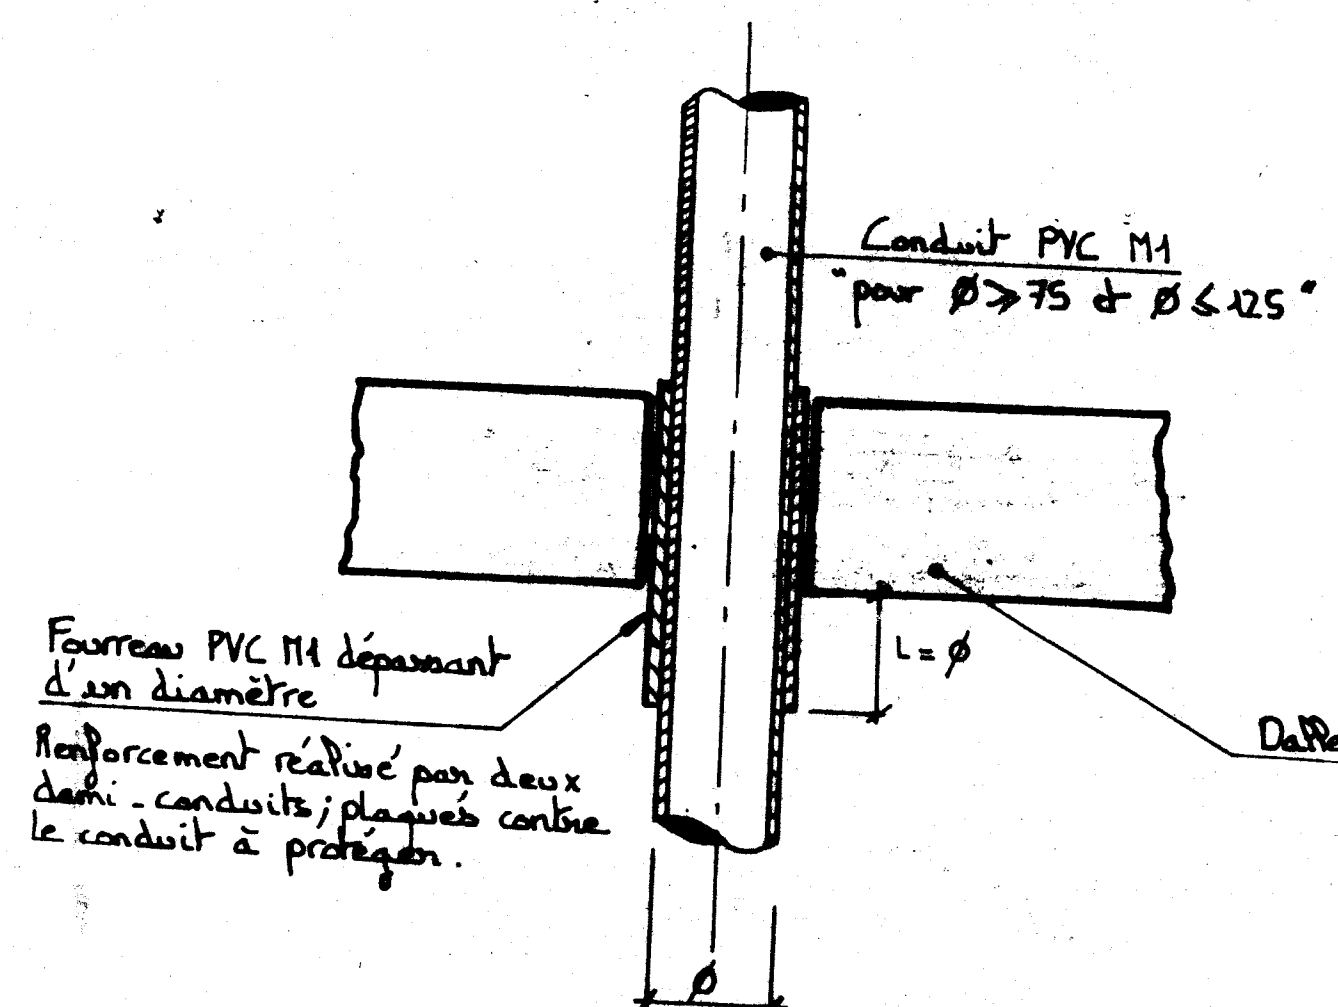 Conduit PVC M1
"pour Ø ≥ 75 et Ø ≤ 125"
Fourreau PVC M1 dépassant
d'un diamètre
Renforcement réalisé par deux
demi-conduits; plaqués contre
le conduit à protéger.
L = Ø
Dalle
Ø